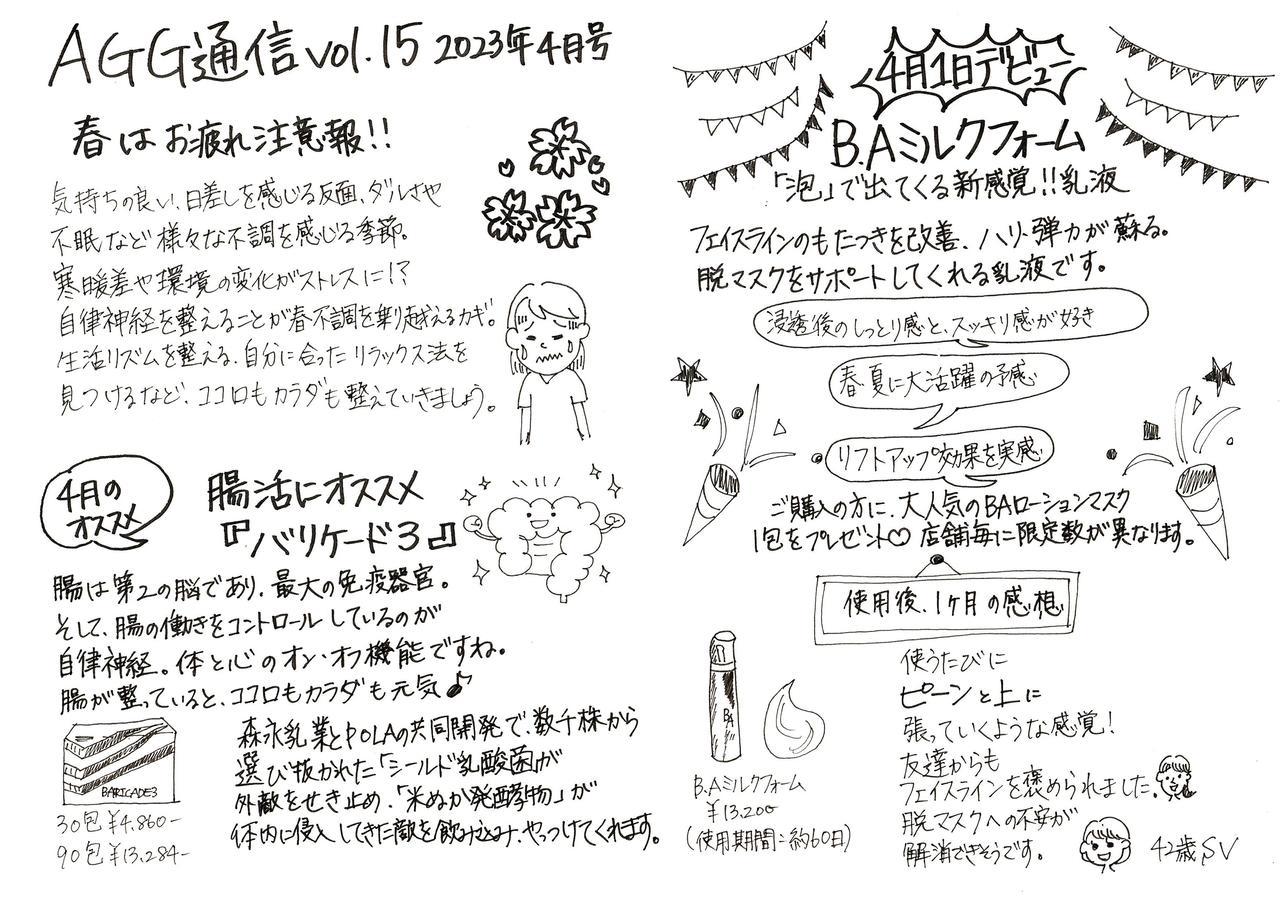 AGG通信 vol.15 2023年4月号
春はお疲れ注意報!!
気持ちの良い、日差しを感じる反面、ダルさや
不眠など様々な不調を感じる季節。
寒暖差や環境の変化がストレスに!?
自律神経を整えることが春不調を乗り越えるカギ。
生活リズムを整える、自分に合ったリラックス法を
見つけるなど、ココロもカラダも整えていきましょう。
4月の
オススメ
腸活にオススメ
『バリケード3』
腸は第2の脳であり、最大の免疫器官。
そして、腸の働きをコントロールしているのが
自律神経。体と心のオン・オフ機能ですね。
腸が整っていると、ココロもカラダも元気♪
BARICADE3
30包 ¥4,860-
90包 ¥13,284-
森永乳業とPOLAの共同開発で、数千株から
選び抜かれた「シールド乳酸菌」が
外敵をせき止め、「米ぬか発酵物」が
体内に侵入してきた敵を飲み込み、やっつけてくれます。
4月1日デビュー
B.Aミルクフォーム
「泡」で出てくる新感覚!!乳液
フェイスラインのもたつきを改善、ハリ・弾力が蘇る。
脱マスクをサポートしてくれる乳液です。
浸透後のしっとり感と、スッキリ感が好き
春夏に大活躍の予感
リフトアップ効果を実感
ご購入の方に、大人気のBAローションマスク
1包をプレゼント♡ 店舗毎に限定数が異なります。
使用後、1ヶ月の感想
BA
B.Aミルクフォーム
¥13,200
(使用期間:約60日)
使うたびに
ピーンと上に
張っていくような感覚!
友達からも
フェイスラインを褒められました。
脱マスクへの不安が
解消できそうです。
42歳SV